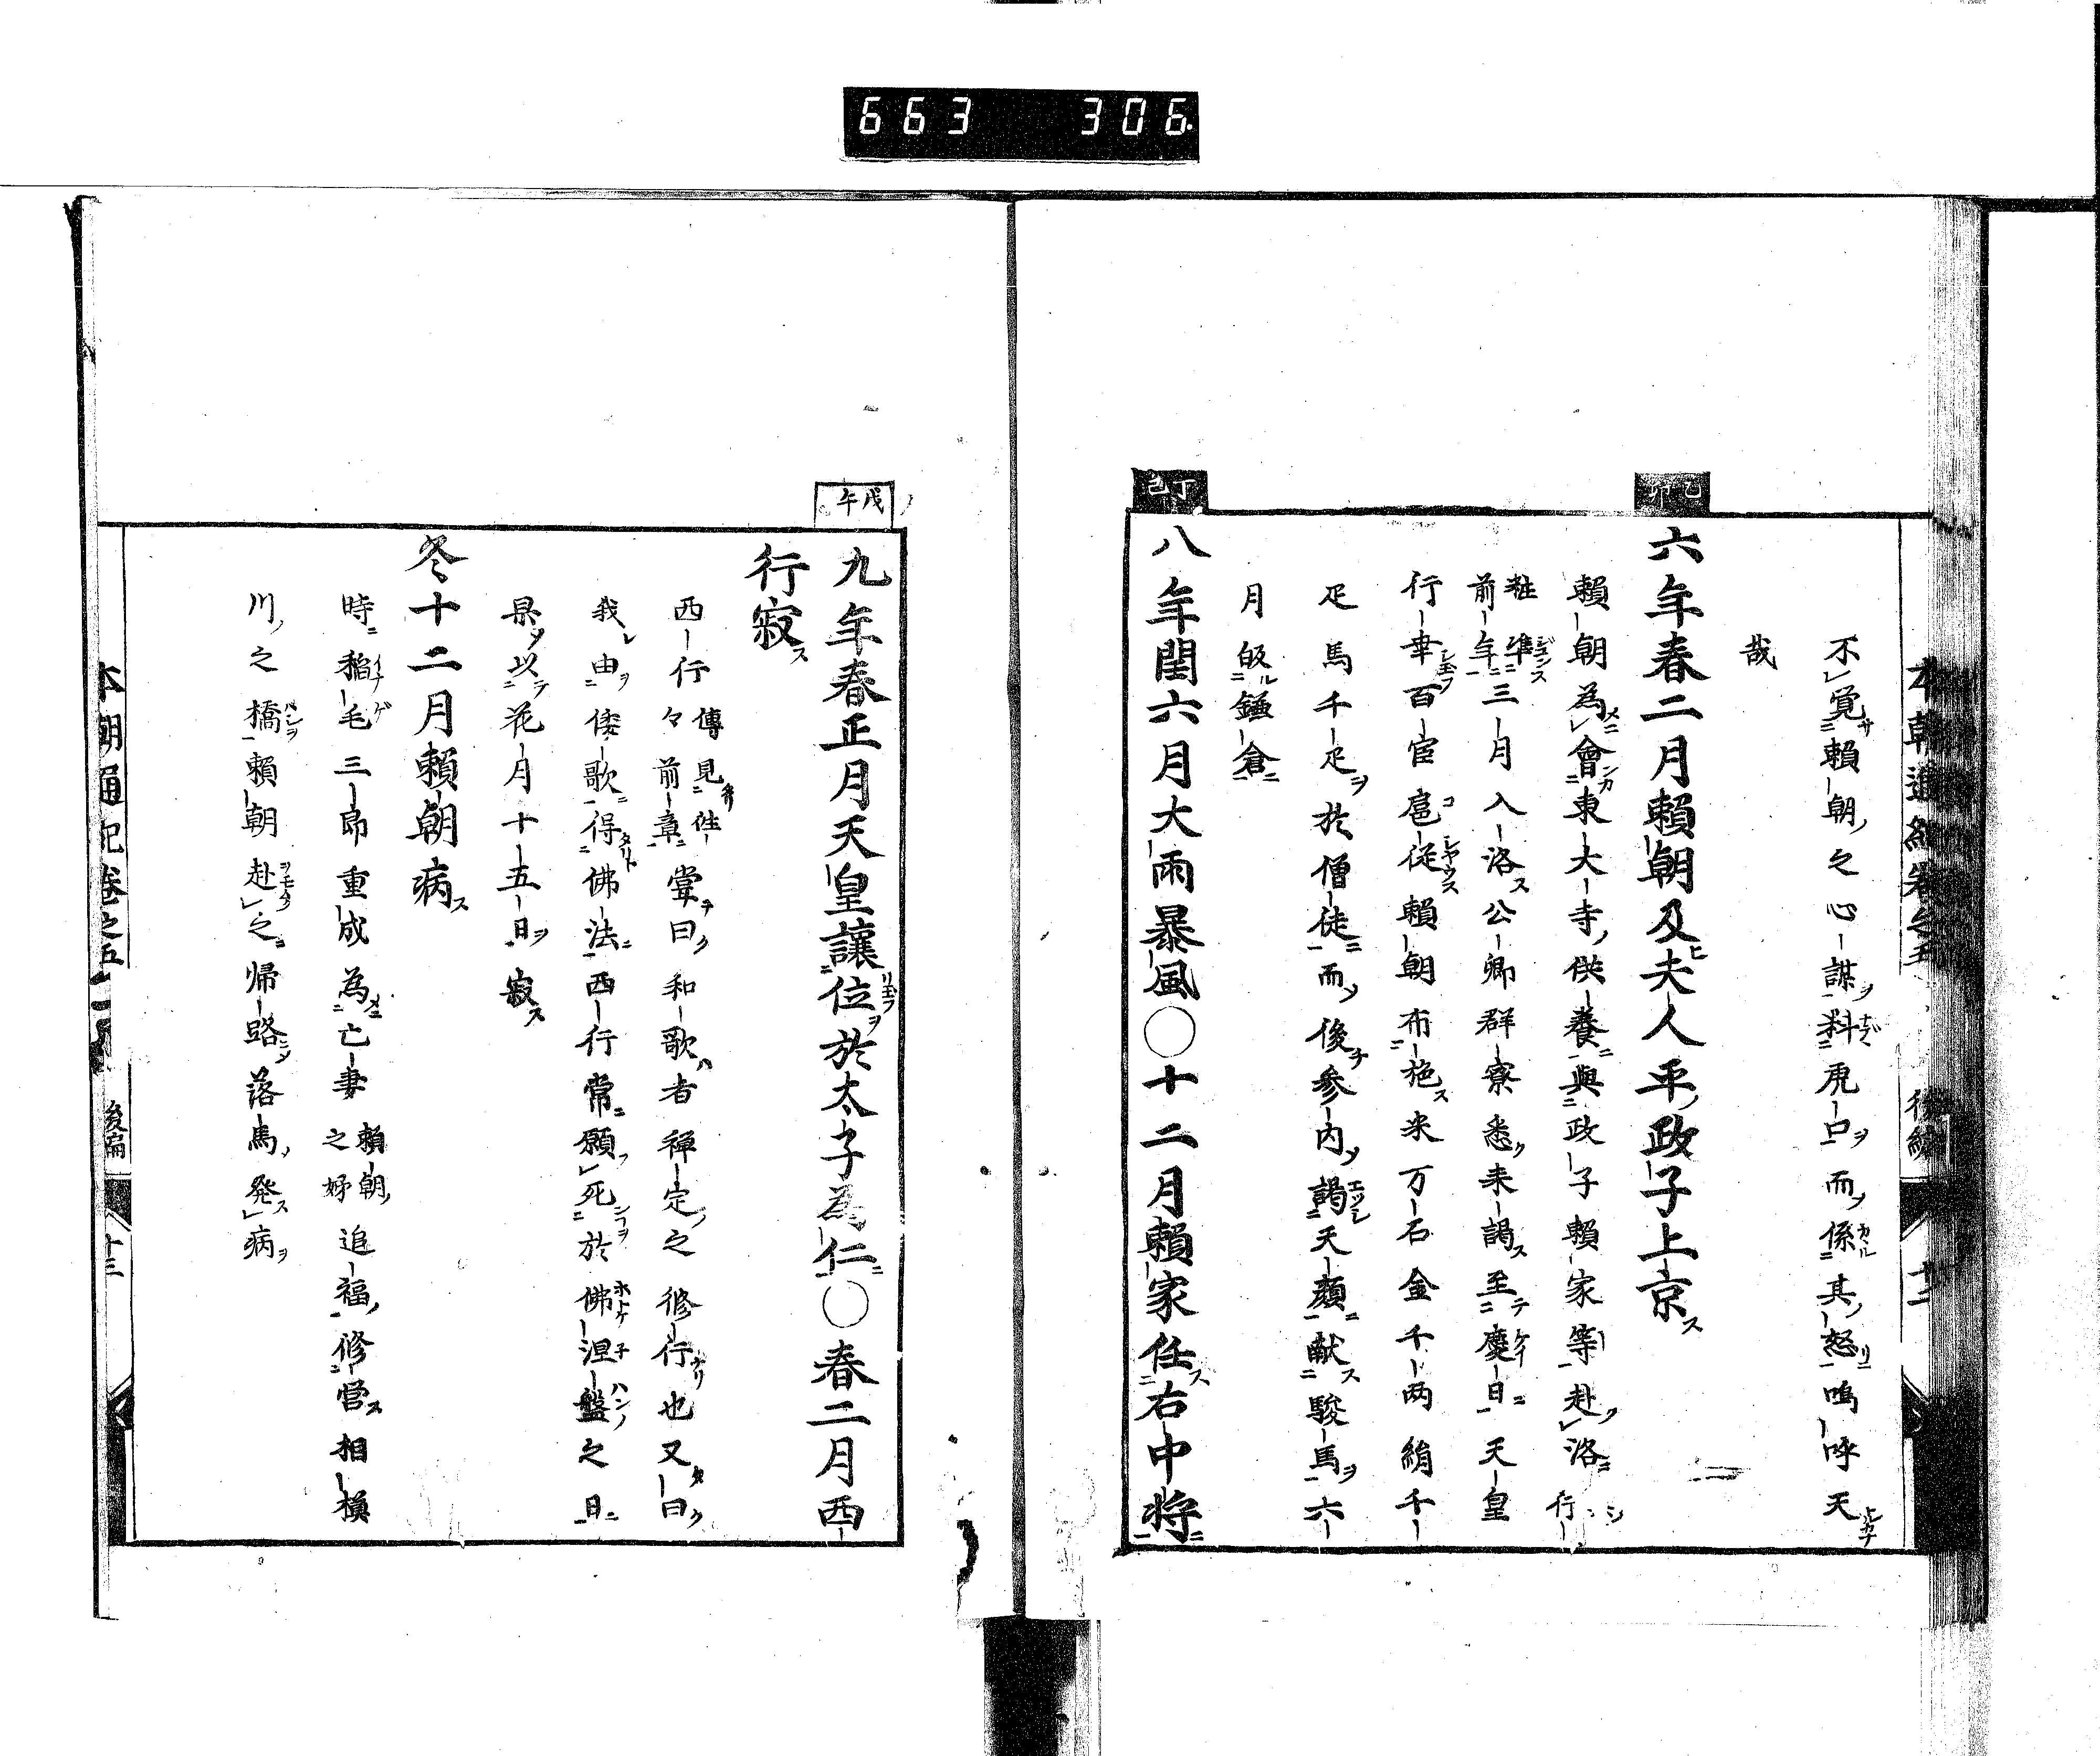 663 306
本朝通紀卷之五 後編 十二
不覚頼朝之心謀料虎口而係其怒嗚呼天
哉
乙卯
六年春二月頼朝及夫人平政子上京
頼朝為會東大寺供養與政子頼家等赴洛行
粧準
前年三月入洛公卿群寮悉来謁至慶日天皇
行幸百官扈従頼朝布施米万石金千両絹千
疋馬千疋於僧徒而後参内謁天顔献駿馬六
月皈鎌倉
丁巳
八年閏六月大雨暴風○十二月頼家任右中将
戊午
九年春正月天皇讓位於太子為仁○春二月西
行寂
西行傳見
々前章 嘗曰和歌者禪定之修行也又曰
我由倭歌得佛法西行常願死於佛涅盤之日
果以花月十五日寂
冬十二月頼朝病
時稲毛三郎重成為亡妻頼朝
之姊追福修營相模
川之橋頼朝赴之帰路落馬発病
本朝通紀卷之五 後編 十三